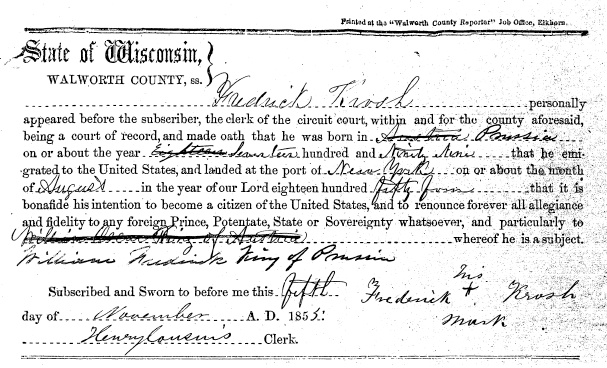 Printed at the "Walworth County Reporter" Job Office, Elkhorn.
State of Wisconsin,
WALWORTH COUNTY, ss.
Fredrick Krosh personally
appeared before the subscriber, the clerk of the circuit court, within and for the county aforesaid,
being a court of record, and made oath that he was born in Austria Prussia
on or about the year Eighteen Seventeen hundred and Ninty Nine that he emi-
grated to the United States, and landed at the port of New York on or about the month
of August in the year of our Lord eighteen hundred fifty four that it is
bonafide his intention to become a citizen of the United States, and to renounce forever all allegiance
and fidelity to any foreign Prince, Potentate, State or Sovereignty whatsoever, and particularly to
King of Austria whereof he is a subject.
William Fredrick King of Prussia
Subscribed and Sworn to before me this fifth
Frederick his + mark Krosh
day of November A. D. 1855.
Henry Cousins Clerk.